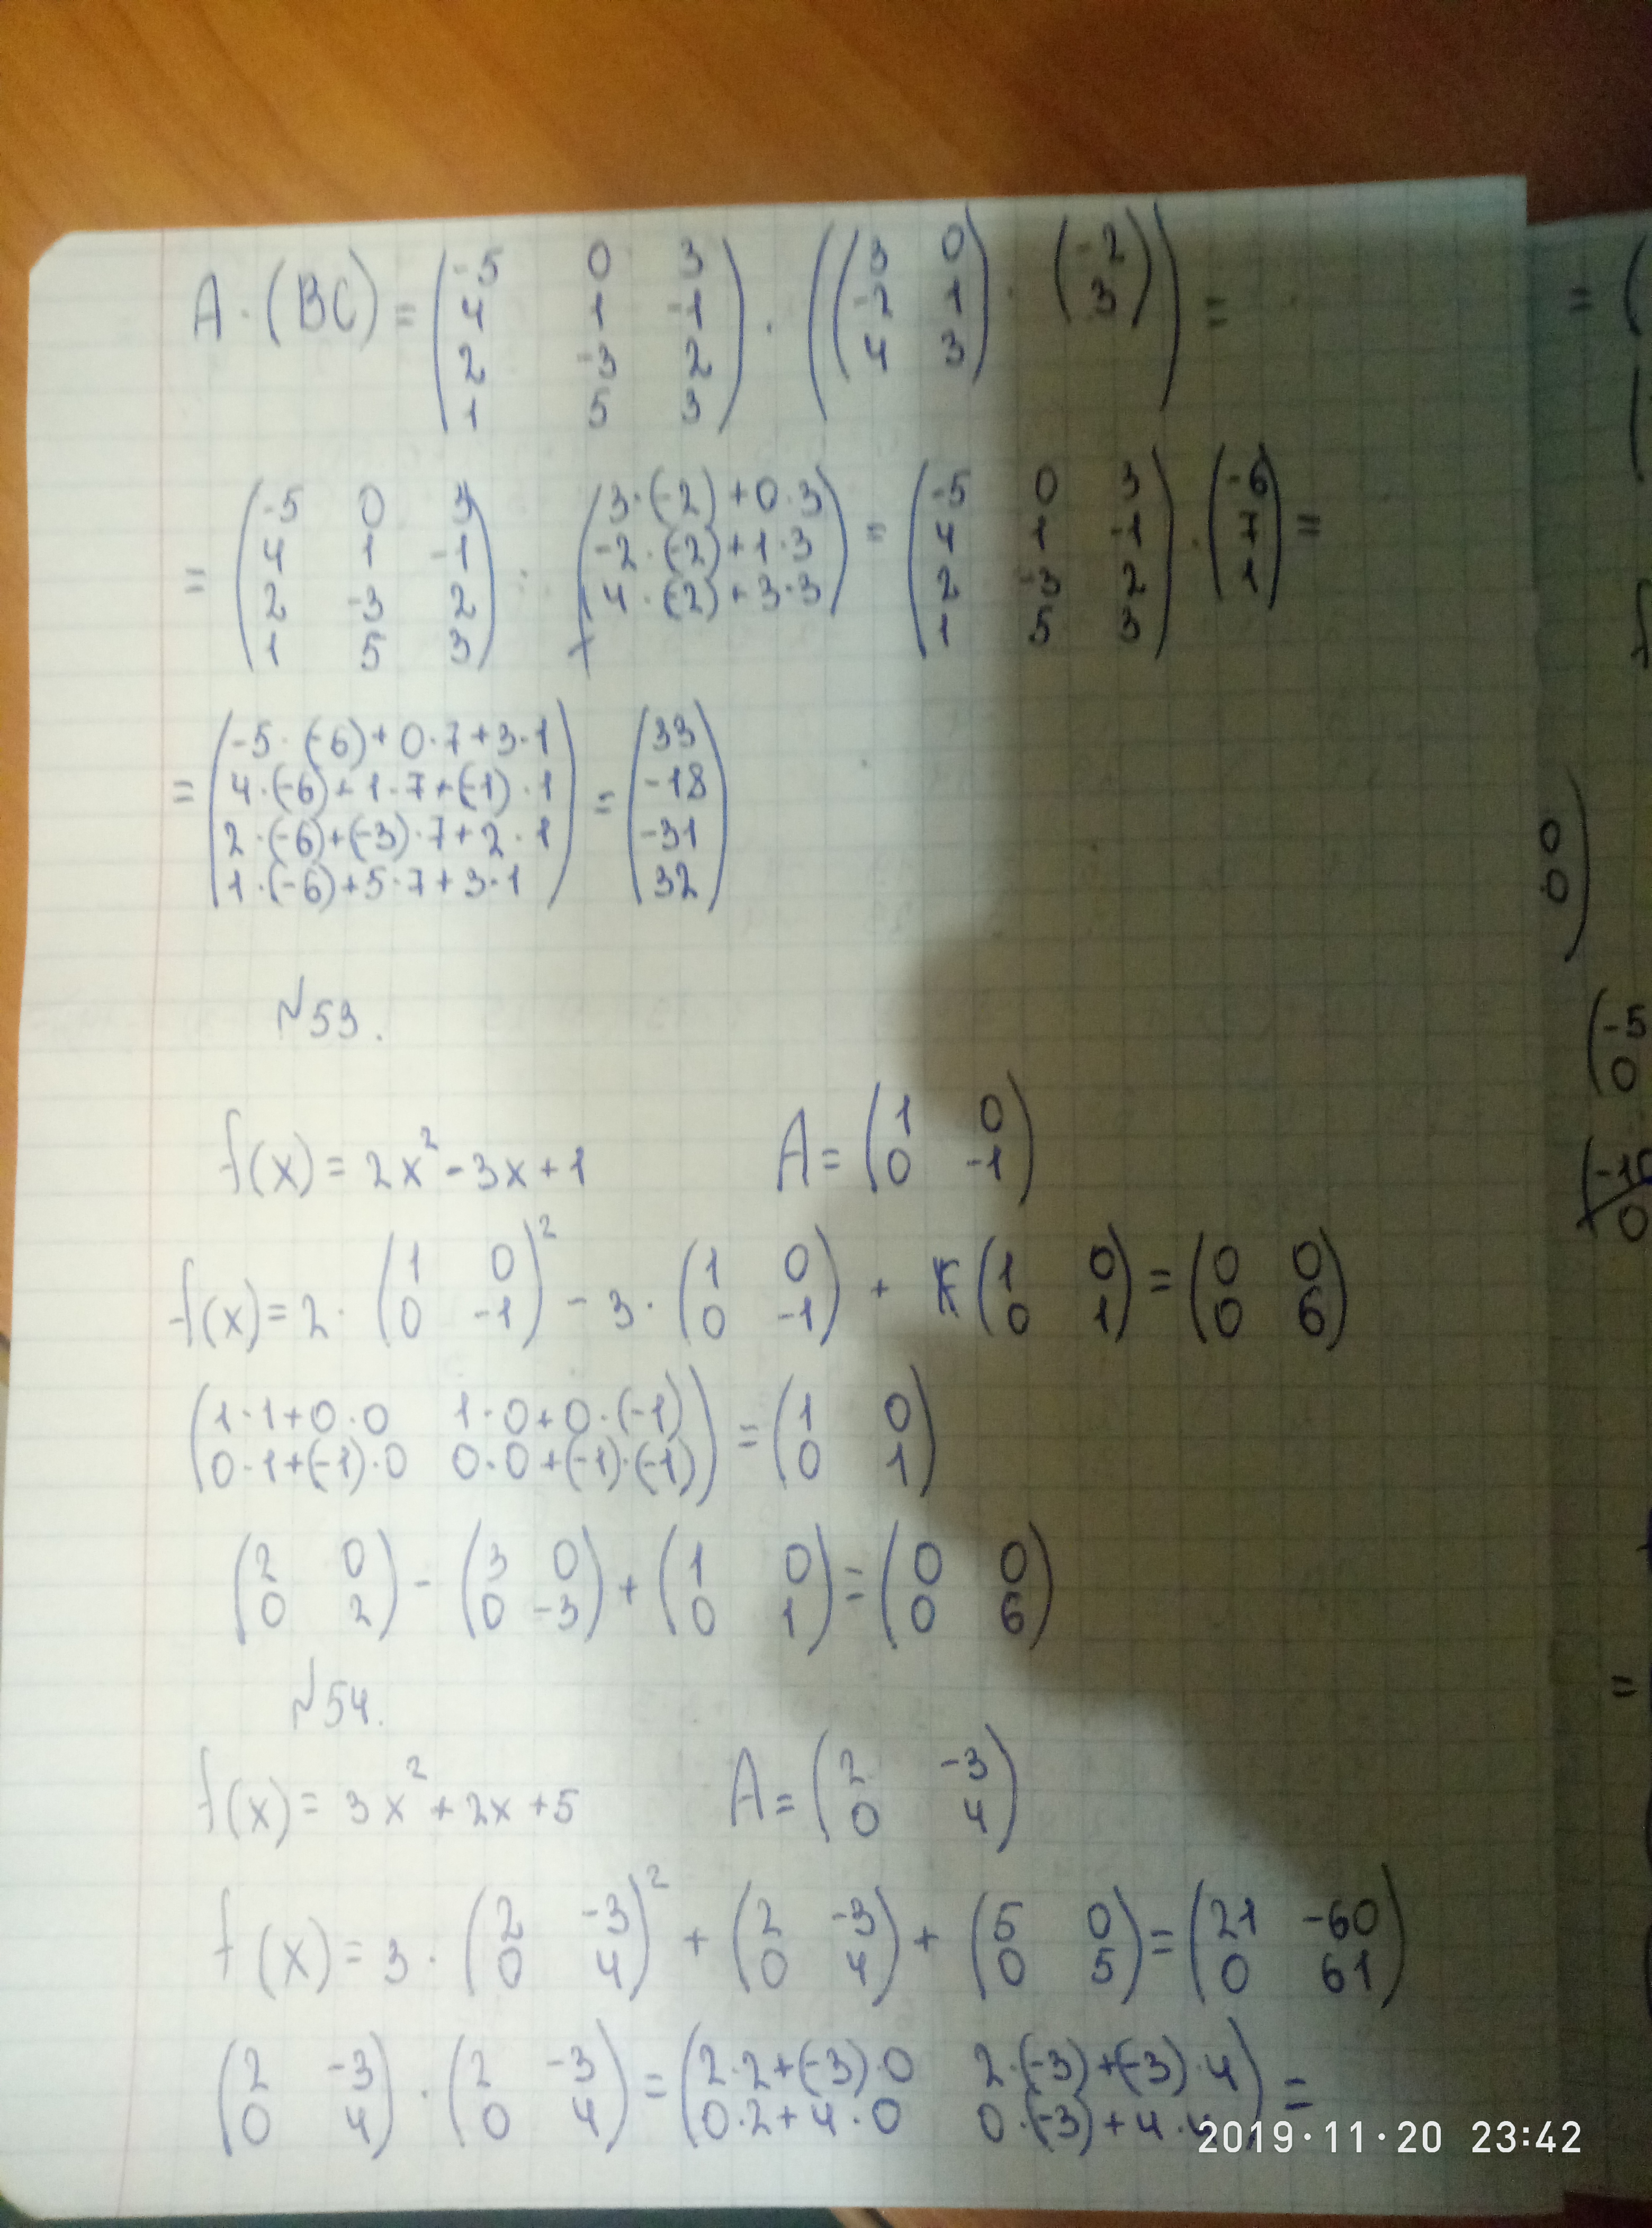 A · (BC) = ( -5 0 3 ; 4 1 -1 ; 2 -3 2 ; 1 5 3 ) · ( ( 3 0 ; -2 1 ; 4 3 ) · ( -2 ; 3 ) ) =
= ( -5 0 3 ; 4 1 -1 ; 2 -3 2 ; 1 5 3 ) · ( 3·(-2)+0·3 ; -2·(-2)+1·3 ; 4·(-2)+3·3 ) = ( -5 0 3 ; 4 1 -1 ; 2 -3 2 ; 1 5 3 ) · ( -6 ; 7 ; 1 ) =
= ( -5·(-6)+0·7+3·1 ; 4·(-6)+1·7+(-1)·1 ; 2·(-6)+(-3)·7+2·1 ; 1·(-6)+5·7+3·1 ) = ( 33 ; -18 ; -31 ; 32 )
№53.
f(x) = 2x² - 3x + 1 A = ( 1 0 ; 0 -1 )
f(x) = 2 · ( 1 0 ; 0 -1 )² - 3 · ( 1 0 ; 0 -1 ) + ( 1 0 ; 0 1 ) = ( 0 0 ; 0 6 )
( 1·1+0·0 1·0+0·(-1) ; 0·1+(-1)·0 0·0+(-1)·(-1) ) = ( 1 0 ; 0 1 )
( 2 0 ; 0 2 ) - ( 3 0 ; 0 -3 ) + ( 1 0 ; 0 1 ) = ( 0 0 ; 0 6 )
№54.
f(x) = 3x² + 2x + 5 A = ( 2 -3 ; 0 4 )
f(x) = 3 · ( 2 -3 ; 0 4 )² + ( 2 -3 ; 0 4 ) + ( 5 0 ; 0 5 ) = ( 21 -60 ; 0 61 )
( 2 -3 ; 0 4 ) · ( 2 -3 ; 0 4 ) = ( 2·2+(-3)·0 2·(-3)+(-3)·4 ; 0·2+4·0 0·(-3)+4·4 ) =
2019·11·20 23:42